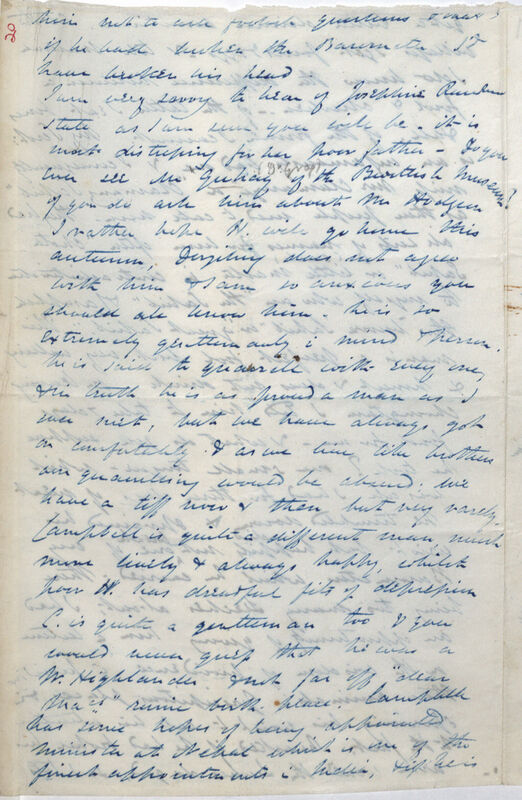 20
him not to ask foolish questions & was
if he had broken the Barometer I'd
have broken his head.
I am very sorry to hear of Josephine
state as I am sure you will be. it is
most distressing for her poor father – Do you
ever see Mr. Gray of the British Museum?
if you do ask him about Mr Hodgson
I rather hope H. will go home this
autumn, Darjiling does not agree
with him & I am so anxious you
should all know him. he is so
extremely gentlemanly i mind & person.
he is said to quarrell with every one,
& in truth he is as proud a man as I
ever met, but we have always got
on comfortably. & as we live like brothers
our quarelling would be absurd: we
have a tiff now & then but very rarely.
Campbell is quite a different man, much
more lively & always happy, whilst
poor H. has dreadful fits of depression
C. is quite a gentleman too & you
would never guess that he was a
W. Highlander & not far off "dear
Ma's" birth place. Campbell
has some hopes of being appointed
minister at Nepal which is one of the
finest appointments i India, & if he is